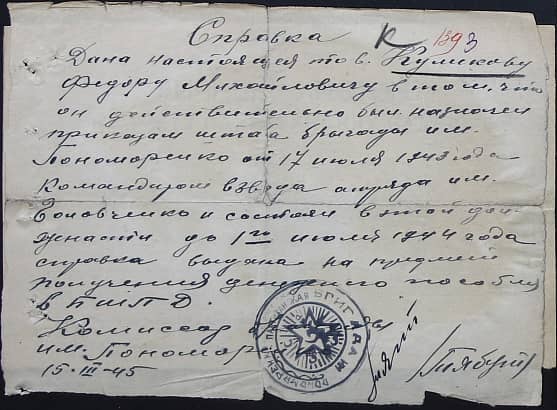 Справка К 1393
Дана настоящая тов. Куликову
Федору Михайловичу в том, что
он действительно был назначен
приказам штаба бригады им.
Пономаренко от 17 июля 1943 года
командиром взвода отряда им.
и состоял в этой дол-
жнасти до 1го июля 1944 года
справка выдана на предмет
получения денежного пособия
в БШПД.
Комиссар
им. Понома
15-III-45
БРИГАДА